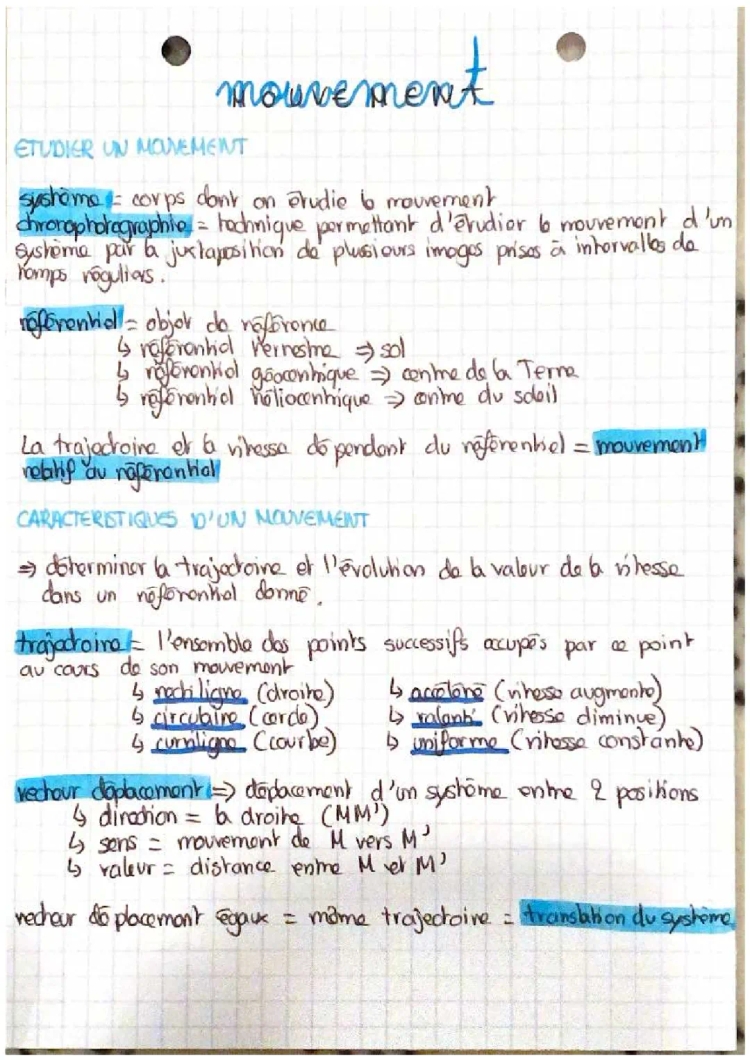 mouvement
ETUDIER UN MOUVEMENT
système = corps dont on étudie le mouvement
chronophotographie = technique permettant d'étudier le mouvement d'un
système par la juxtaposition de plussieurs images prises à intervalles de
temps réguliers.
référentiel = objet de référence
↳ référentiel terrestre ⇒ sol
↳ référentiel géocentrique ⇒ centre de la Terre
↳ référentiel héliocentrique ⇒ centre du soleil
La trajectoire et la vitesse dépendent du référentiel = mouvement
relatif au référentiel
CARACTERISTIQUES D'UN MOUVEMENT
⇒ déterminer la trajectoire et l'évolution de la valeur de la vitesse
dans un référentiel donné.
trajectoire = l'ensemble des points successifs occupés par ce point
au cours de son mouvement
↳ rectiligne (droite) ↳ accéléré (vitesse augmente)
↳ circulaire (cercle) ↳ ralenti (vitesse diminue)
↳ curviligne (courbe) ↳ uniforme (vitesse constante)
vecteur déplacement ⇒ déplacement d'un système entre 2 positions
↳ direction = la droite (MM')
↳ sens = mouvement de M vers M'
↳ valeur = distance entre M et M'
vecteur déplacement égaux = même trajectoire = translation du système